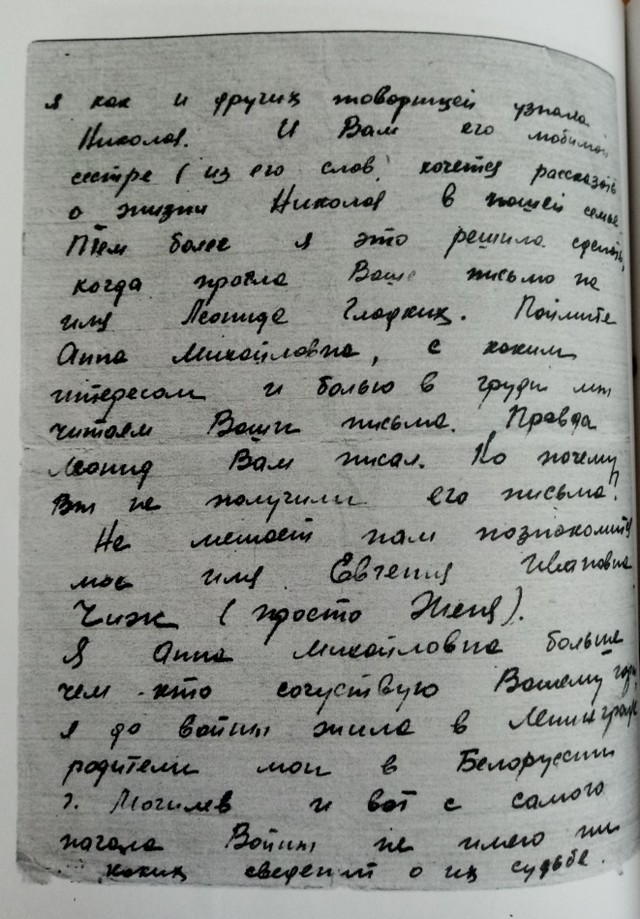 я как и других товарищей узнала
Николая. И Вам его любимой
сестре (из его слов) хочется рассказать
о жизни Николая в нашей семье
Тем более я это решила сделать,
когда прочла Ваше письмо на
имя Леонида Гладких. Поймите
Анна Михайловна, с каким
интересом и болью в груди мы
читаем Ваши письма. Правда
Леонид Вам писал. Но почему
Вы не получили его письма?
Не мешает нам познакомится
мое имя Евгения Ивановна
Чиж (просто Женя).
Я Анна Михайловна больше
чем кто сочуствую Вашему горю,
я до войны жила в Ленинграде
родители мои в Белоруссии
г. Могилев и вот с самого
начала Войны не имею ни
каких сведений о их судьбе.